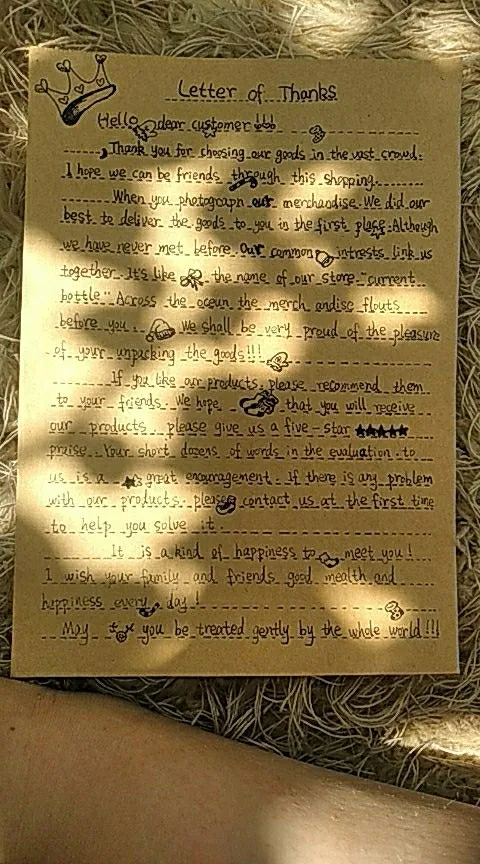 Letter of Thanks
Hello dear customer!!!
Thank you for choosing our goods in the vast crowd.
I hope we can be friends through this shopping.
When you photograph our merchandise. We did our
best to deliver the goods to you in the first place. Although
we have never met before. Our common intrests link us
together. It's like the name of our store "current
bottle." Across the ocean the merch andise flouts
before you. We shall be very proud of the pleasure
of your unpacking the goods!!!
If you like our products. please recommend them
to your friends. We hope that you will receive
our products. please give us a five-star ★★★★★
praise. Your short dozens of words in the evaluation. to
us is a great encouragement. If there is any problem
with our products. please contact us at the first time
to help you solve it.
It is a kind of happiness to meet you!
I wish your family and friends good mealth and
happiness every day!
May you be treated gently by the whole world!!!